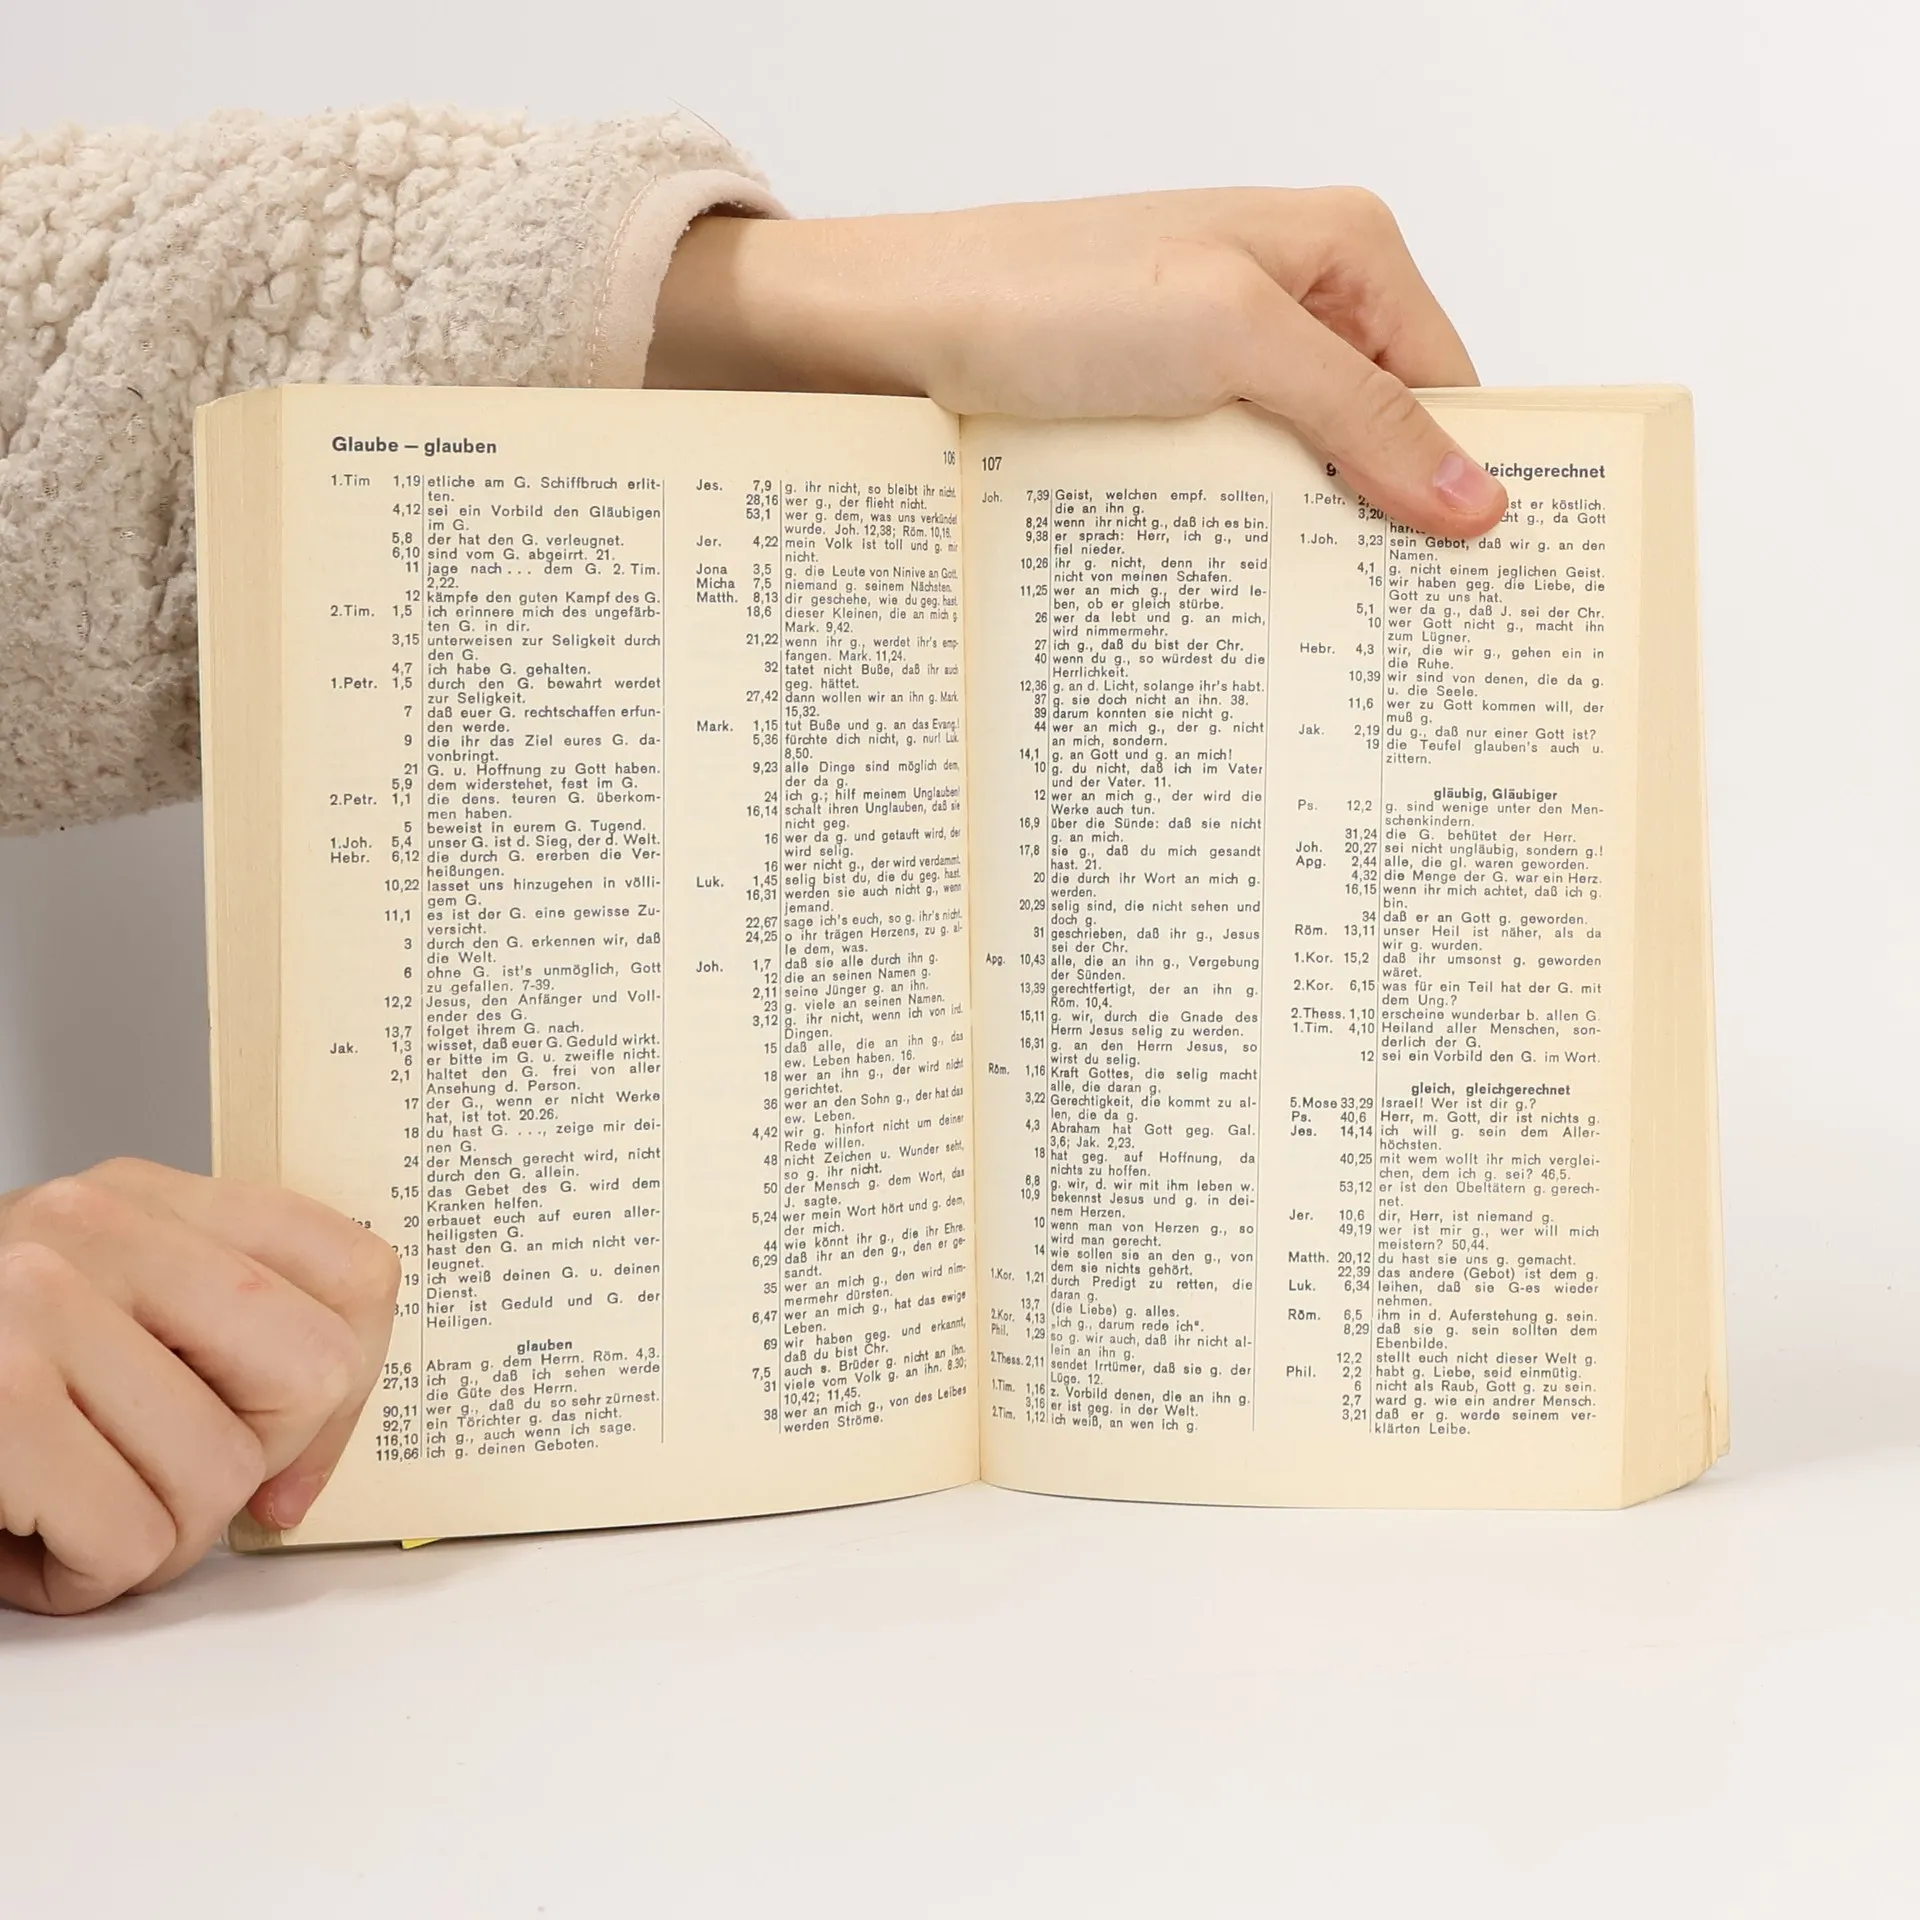 Glaube — glauben
106
1.Tim 1,19 etliche am G. Schiffbruch erlit-
ten.
4,12 sei ein Vorbild den Gläubigen
im G.
5,8 der hat den G. verleugnet.
6,10 sind vom G. abgeirrt. 21.
11 jage nach... dem G. 2. Tim.
2,22.
12 kämpfe den guten Kampf des G.
2.Tim. 1,5 ich erinnere mich des ungefärb-
ten G. in dir.
3,15 unterweisen zur Seligkeit durch
den G.
4,7 ich habe G. gehalten.
1.Petr. 1,5 durch den G. bewahrt werdet
zur Seligkeit.
7 daß euer G. rechtschaffen erfun-
den werde.
9 die ihr das Ziel eures G. da-
vonbringt.
21 G. u. Hoffnung zu Gott haben.
5,9 dem widerstehet, fest im G.
2.Petr. 1,1 die dens. teuren G. überkom-
men haben.
5 beweist in eurem G. Tugend.
1.Joh. 5,4 unser G. ist d. Sieg, der d. Welt.
Hebr. 6,12 die durch G. ererben die Ver-
heißungen.
10,22 lasset uns hinzugehen in völli-
gem G.
11,1 es ist der G. eine gewisse Zu-
versicht.
3 durch den G. erkennen wir, daß
die Welt.
6 ohne G. ist's unmöglich, Gott
zu gefallen. 7-39.
12,2 Jesus, den Anfänger und Voll-
ender des G.
13,7 folget ihrem G. nach.
Jak. 1,3 wisset, daß euer G. Geduld wirkt.
6 er bitte im G. u. zweifle nicht.
2,1 haltet den G. frei von aller
Ansehung d. Person.
17 der G., wenn er nicht Werke
hat, ist tot. 20.26.
18 du hast G. ...., zeige mir dei-
nen G.
24 der Mensch gerecht wird, nicht
durch den G. allein.
5,15 das Gebet des G. wird dem
Kranken helfen.
20 erbauet euch auf euren aller-
heiligsten G.
,13 hast den G. an mich nicht ver-
leugnet.
19 ich weiß deinen G. u. deinen
Dienst.
,10 hier ist Geduld und G. der
Heiligen.
glauben
15,6 Abram g. dem Herrn. Röm. 4,3.
27,13 ich g., daß ich sehen werde
die Güte des Herrn.
90,11 wer g., daß du so sehr zürnest.
92,7 ein Törichter g. das nicht.
116,10 ich g., auch wenn ich sage.
119,66 ich g. deinen Geboten.
Jes. 7,9 g. ihr nicht, so bleibt ihr nicht.
28,16 wer g., der flieht nicht.
53,1 wer g. dem, was uns verkündet
wurde. Joh. 12,38; Röm. 10,16.
Jer. 4,22 mein Volk ist toll und g. mir
nicht.
Jona 3,5 g. die Leute von Ninive an Gott.
Micha 7,5 niemand g. seinem Nächsten.
Matth. 8,13 dir geschehe, wie du geg. hast.
18,6 dieser Kleinen, die an mich g.
Mark. 9,42.
21,22 wenn ihr g., werdet ihr's emp-
fangen. Mark. 11,24.
32 tatet nicht Buße, daß ihr auch
geg. hättet.
27,42 dann wollen wir an ihn g. Mark.
15,32.
Mark. 1,15 tut Buße und g. an das Evang.!
5,36 fürchte dich nicht, g. nur! Luk.
8,50.
9,23 alle Dinge sind möglich dem,
der da g.
24 ich g.; hilf meinem Unglauben!
16,14 schalt ihren Unglauben, daß sie
nicht geg.
16 wer da g. und getauft wird, der
wird selig.
16 wer nicht g., der wird verdammt.
Luk. 1,45 selig bist du, die du geg. hast.
16,31 werden sie auch nicht g., wenn
jemand.
22,67 sage ich's euch, so g. ihr's nicht.
24,25 o ihr trägen Herzens, zu g. al-
le dem, was.
Joh. 1,7 daß sie alle durch ihn g.
12 die an seinen Namen g.
2,11 seine Jünger g. an ihn.
23 g. viele an seinen Namen.
3,12 g. ihr nicht, wenn ich von ird.
Dingen.
15 daß alle, die an ihn g., das
ew. Leben haben. 16.
18 wer an ihn g., der wird nicht
gerichtet.
36 wer an den Sohn g., der hat das
ew. Leben.
4,42 wir g. hinfort nicht um deiner
Rede willen.
48 nicht Zeichen u. Wunder seht,
so g. ihr nicht.
50 der Mensch g. dem Wort, das
J. sagte.
5,24 wer mein Wort hört und g. dem,
der mich.
44 wie könnt ihr g., die ihr Ehre.
6,29 daß ihr an den g., den er ge-
sandt.
35 wer an mich g., den wird nim-
mermehr dürsten.
6,47 wer an mich g., hat das ewige
Leben.
69 wir haben geg. und erkannt,
daß du bist Chr.
7,5 auch s. Brüder g. nicht an ihn.
31 viele vom Volk g. an ihn. 8,30;
10,42; 11,45.
38 wer an mich g., von des Leibes
werden Ströme.
107
leichgerechnet
Joh. 7,39 Geist, welchen empf. sollten,
die an ihn g.
8,24 wenn ihr nicht g., daß ich es bin.
9,38 er sprach: Herr, ich g., und
fiel nieder.
10,26 ihr g. nicht, denn ihr seid
nicht von meinen Schafen.
11,25 wer an mich g., der wird le-
ben, ob er gleich stürbe.
26 wer da lebt und g. an mich,
wird nimmermehr.
27 ich g., daß du bist der Chr.
40 wenn du g., so würdest du die
Herrlichkeit.
12,36 g. an d. Licht, solange ihr's habt.
37 g. sie doch nicht an ihn. 38.
39 darum konnten sie nicht g.
44 wer an mich g., der g. nicht
an mich, sondern.
14,1 g. an Gott und g. an mich!
10 g. du nicht, daß ich im Vater
und der Vater. 11.
12 wer an mich g., der wird die
Werke auch tun.
16,9 über die Sünde: daß sie nicht
g. an mich.
17,8 sie g., daß du mich gesandt
hast. 21.
20 die durch ihr Wort an mich g.
werden.
20,29 selig sind, die nicht sehen und
doch g.
31 geschrieben, daß ihr g., Jesus
sei der Chr.
Apg. 10,43 alle, die an ihn g., Vergebung
der Sünden.
13,39 gerechtfertigt, der an ihn g.
Röm. 10,4.
15,11 g. wir, durch die Gnade des
Herrn Jesus selig zu werden.
16,31 g. an den Herrn Jesus, so
wirst du selig.
Röm. 1,16 Kraft Gottes, die selig macht
alle, die daran g.
3,22 Gerechtigkeit, die kommt zu al-
len, die da g.
4,3 Abraham hat Gott geg. Gal.
3,6; Jak. 2,23.
18 hat geg. auf Hoffnung, da
nichts zu hoffen.
6,8 g. wir, d. wir mit ihm leben w.
10,9 bekennst Jesus und g. in dei-
nem Herzen.
10 wenn man von Herzen g., so
wird man gerecht.
14 wie sollen sie an den g., von
dem sie nichts gehört.
1.Kor. 1,21 durch Predigt zu retten, die
daran g.
13,7 (die Liebe) g. alles.
2.Kor. 4,13 „ich g., darum rede ich“.
Phil. 1,29 so g. wir auch, daß ihr nicht al-
lein an ihn g.
2.Thess. 2,11 sendet Irrtümer, daß sie g. der
Lüge. 12.
1.Tim. 1,16 z. Vorbild denen, die an ihn g.
3,16 er ist geg. in der Welt.
2.Tim. 1,12 ich weiß, an wen ich g.
1.Petr. 2, ist er köstlich.
3,20 g., da Gott
1.Joh. 3,23 sein Gebot, daß wir g. an den
Namen.
4,1 g. nicht einem jeglichen Geist.
16 wir haben geg. die Liebe, die
Gott zu uns hat.
5,1 wer da g., daß J. sei der Chr.
10 wer Gott nicht g., macht ihn
zum Lügner.
Hebr. 4,3 wir, die wir g., gehen ein in
die Ruhe.
10,39 wir sind von denen, die da g.
u. die Seele.
11,6 wer zu Gott kommen will, der
muß g.
Jak. 2,19 du g., daß nur einer Gott ist?
19 die Teufel glauben's auch u.
zittern.
gläubig, Gläubiger
Ps. 12,2 g. sind wenige unter den Men-
schenkindern.
31,24 die G. behütet der Herr.
Joh. 20,27 sei nicht ungläubig, sondern g.!
Apg. 2,44 alle, die gl. waren geworden.
4,32 die Menge der G. war ein Herz.
16,15 wenn ihr mich achtet, daß ich g.
bin.
34 daß er an Gott g. geworden.
Röm. 13,11 unser Heil ist näher, als da
wir g. wurden.
1.Kor. 15,2 daß ihr umsonst g. geworden
wäret.
2.Kor. 6,15 was für ein Teil hat der G. mit
dem Ung.?
2.Thess. 1,10 erscheine wunderbar b. allen G.
1.Tim. 4,10 Heiland aller Menschen, son-
derlich der G.
12 sei ein Vorbild den G. im Wort.
gleich, gleichgerechnet
5.Mose 33,29 Israel! Wer ist dir g.?
Ps. 40,6 Herr, m. Gott, dir ist nichts g.
Jes. 14,14 ich will g. sein dem Aller-
höchsten.
40,25 mit wem wollt ihr mich verglei-
chen, dem ich g. sei? 46,5.
53,12 er ist den Übeltätern g. gerech-
net.
Jer. 10,6 dir, Herr, ist niemand g.
49,19 wer ist mir g., wer will mich
meistern? 50,44.
Matth. 20,12 du hast sie uns g. gemacht.
22,39 das andere (Gebot) ist dem g.
Luk. 6,34 leihen, daß sie G-es wieder
nehmen.
Röm. 6,5 ihm in d. Auferstehung g. sein.
8,29 daß sie g. sein sollten dem
Ebenbilde.
12,2 stellt euch nicht dieser Welt g.
Phil. 2,2 habt g. Liebe, seid einmütig.
6 nicht als Raub, Gott g. zu sein.
2,7 ward g. wie ein andrer Mensch.
3,21 daß er g. werde seinem ver-
klärten Leibe.